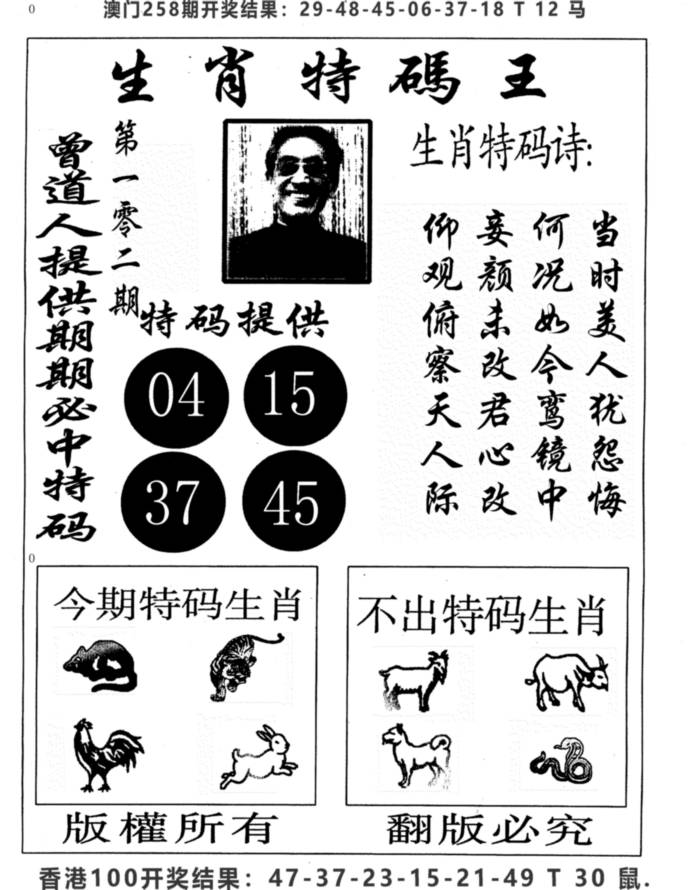 0
澳门258期开奖结果：29-48-45-06-37-18 T 12 马
生肖特碼王
曾道人提供期期必中特码
第一零二期
生肖特码诗:
当时美人犹怨悔
何况如今鸾镜中
妾颜未改君心改
仰观俯察天人际
特码提供
04 15
37 45
0
今期特码生肖
不出特码生肖
版權所有
翻版必究
香港100开奖结果：47-37-23-15-21-49 T 30 鼠.